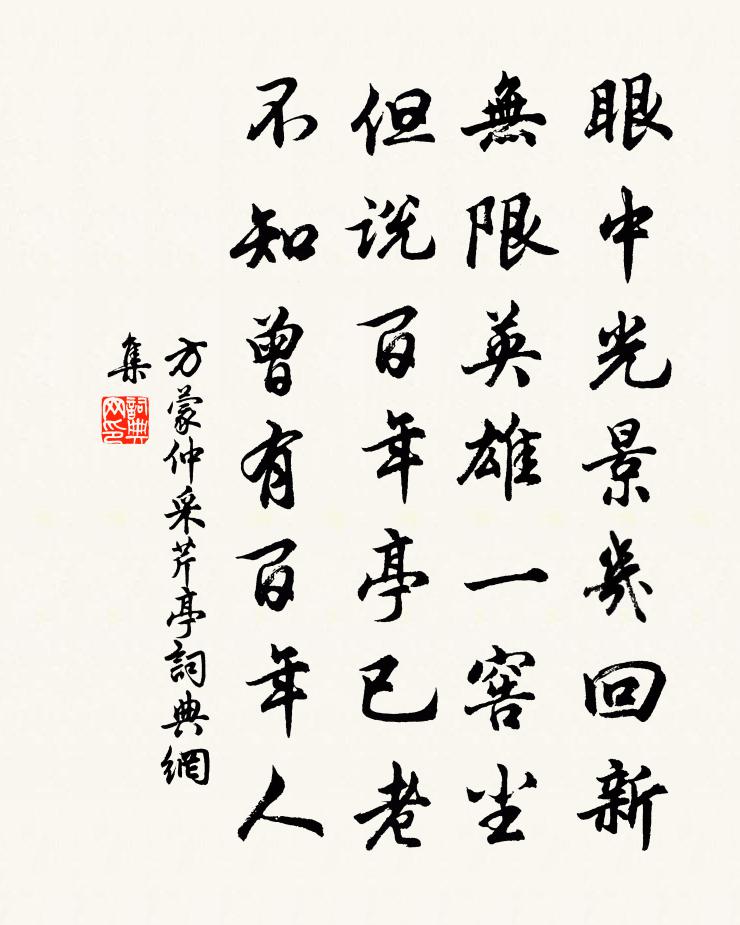 眼中光景幾回新
無限英雄一窖尘
但说百年亭已老
不知曾有百年人
方蒙仲采芹亭詞典網
集
詞典
网印